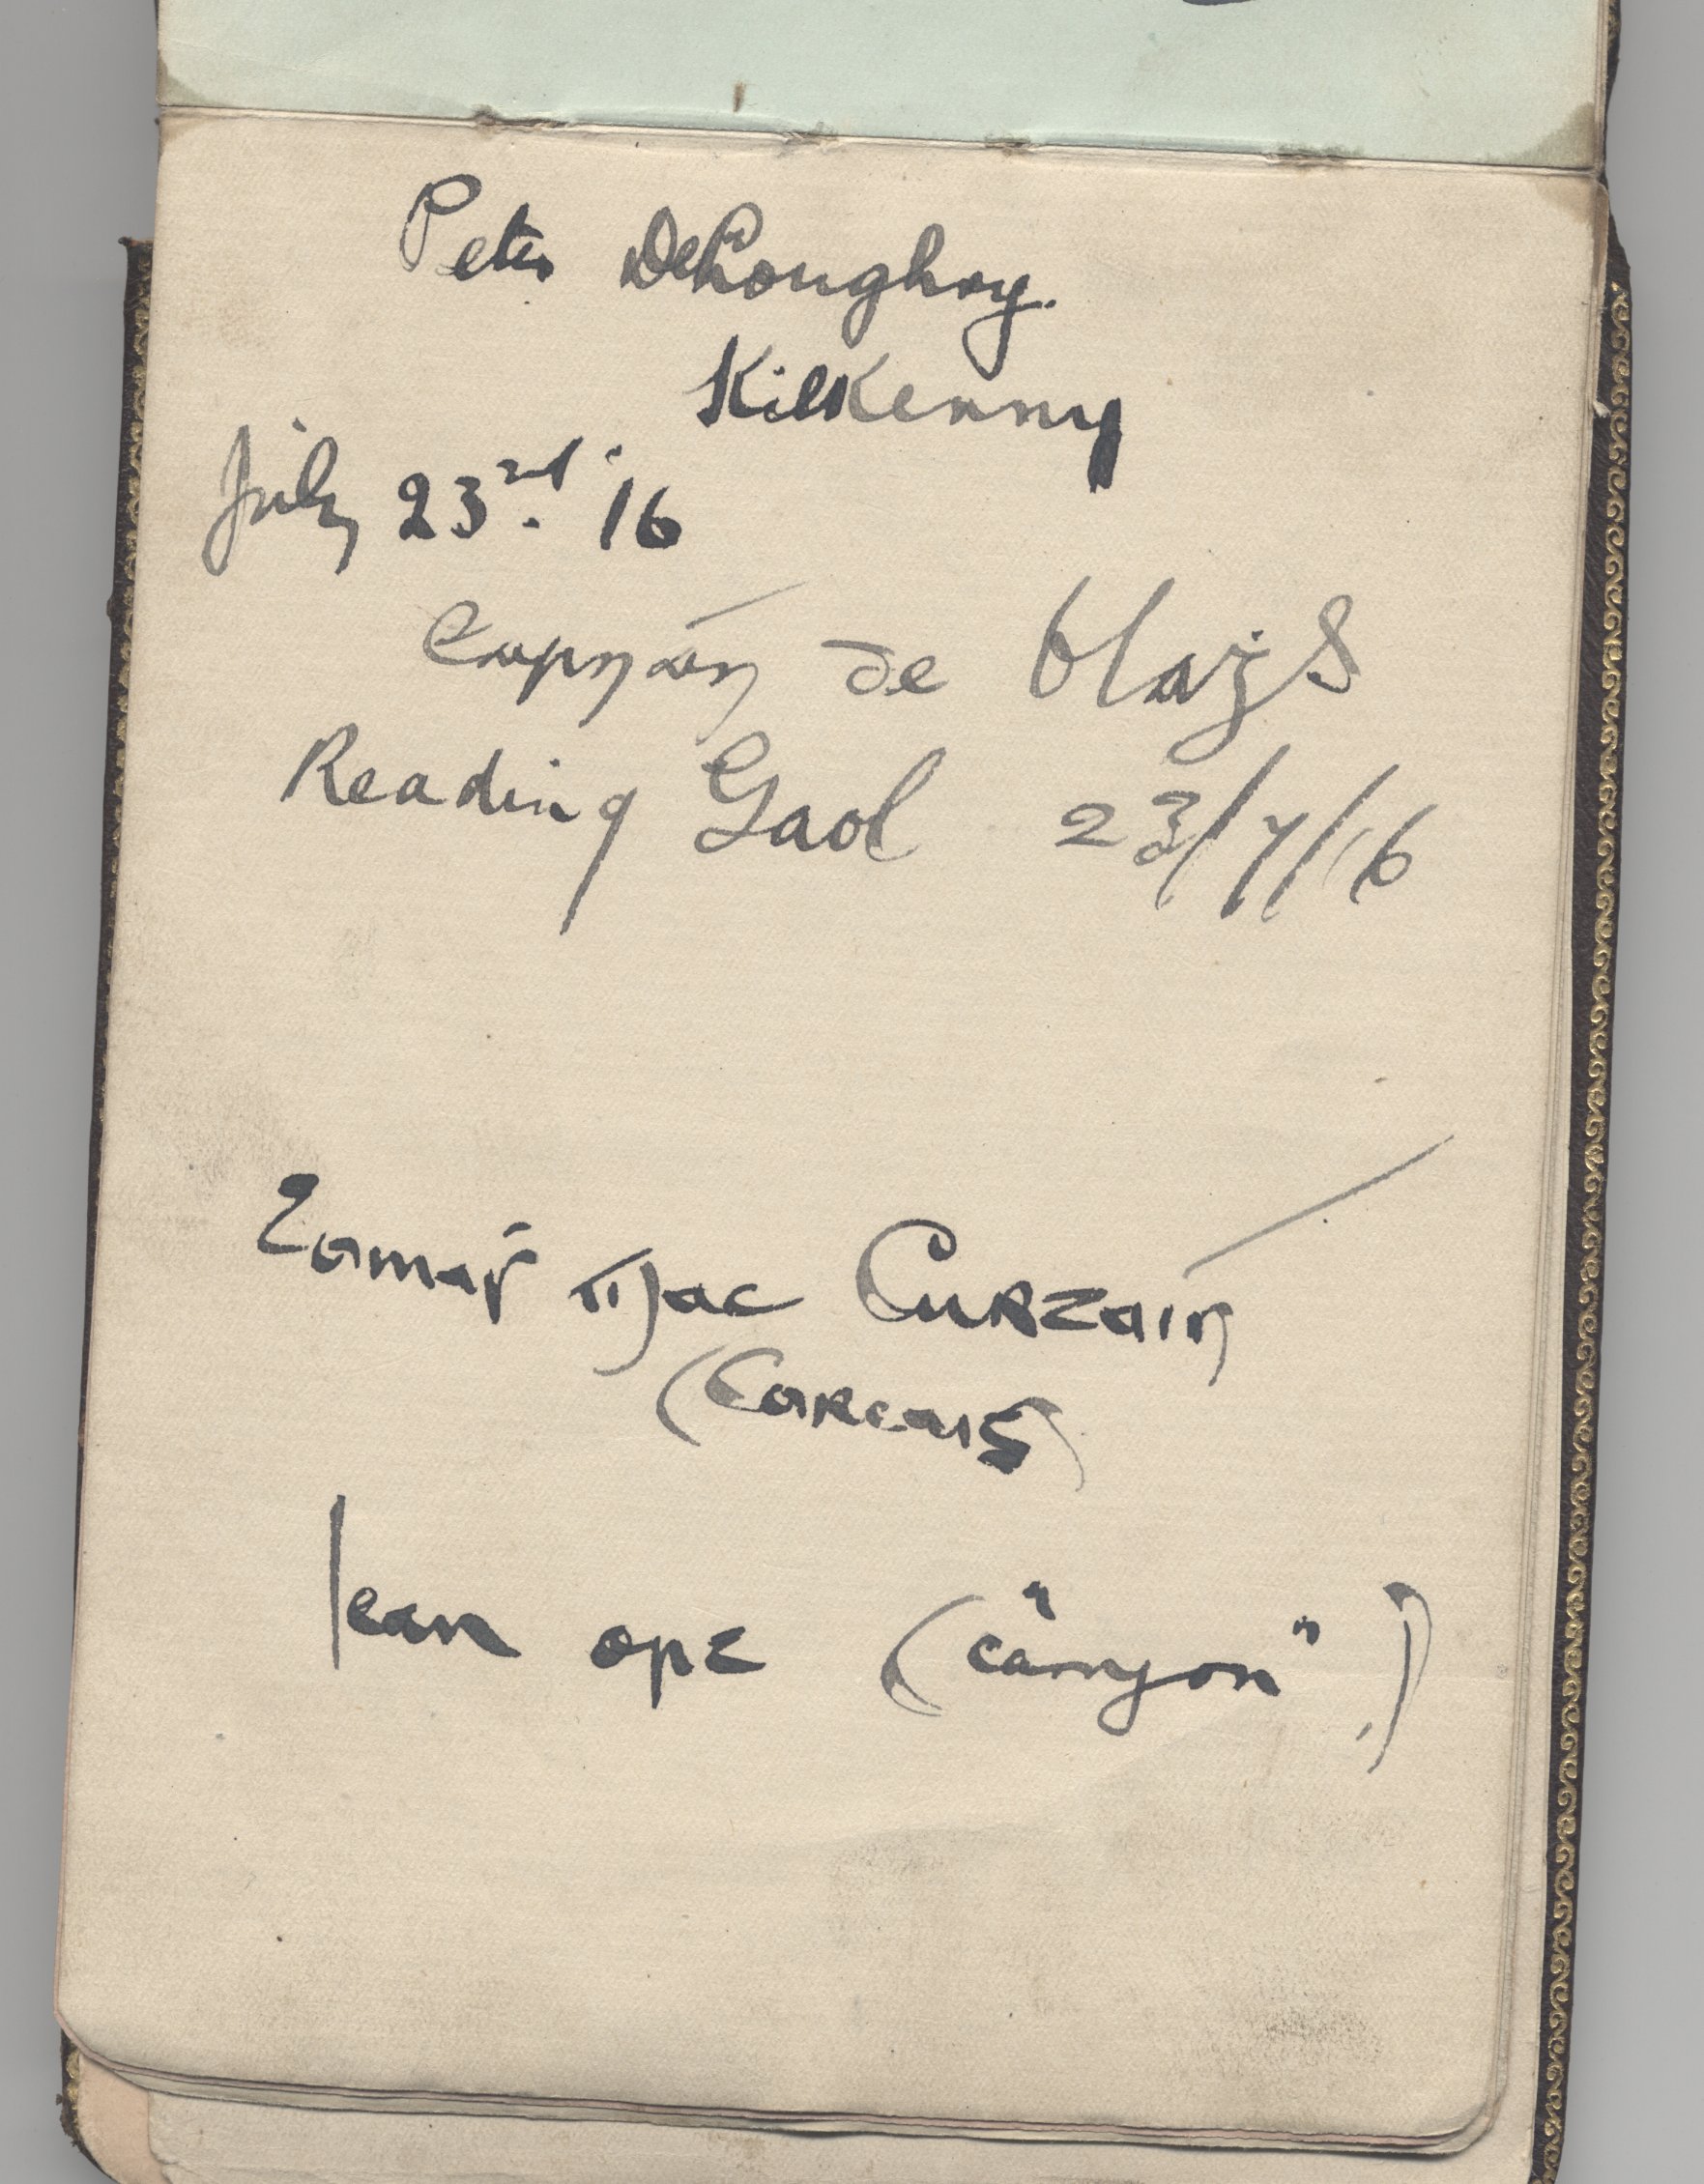 Peter DeLoughry.
Kilkenny
July 23rd. '16
earnán de blaġd
Reading Gaol 23/7/16
Tomás Mac Curtáin
(Corcaiġ)
lean ort ("cannon")